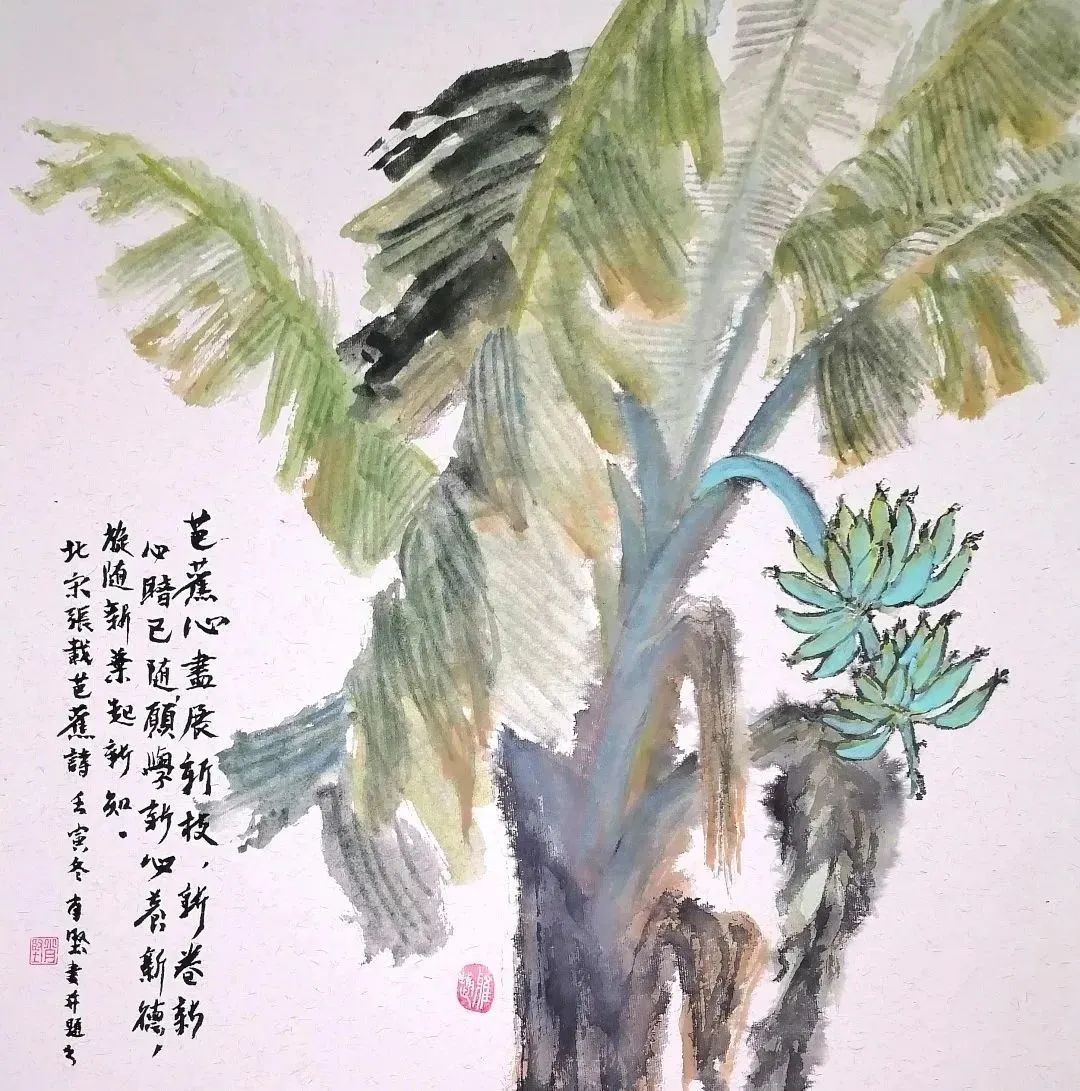 芭蕉心盡展新枝，新卷新
心暗已随，願學新心養新德，
旋随新葉起新知。
北宋張載芭蕉詩 壬寅冬 堅 并題
雅趣